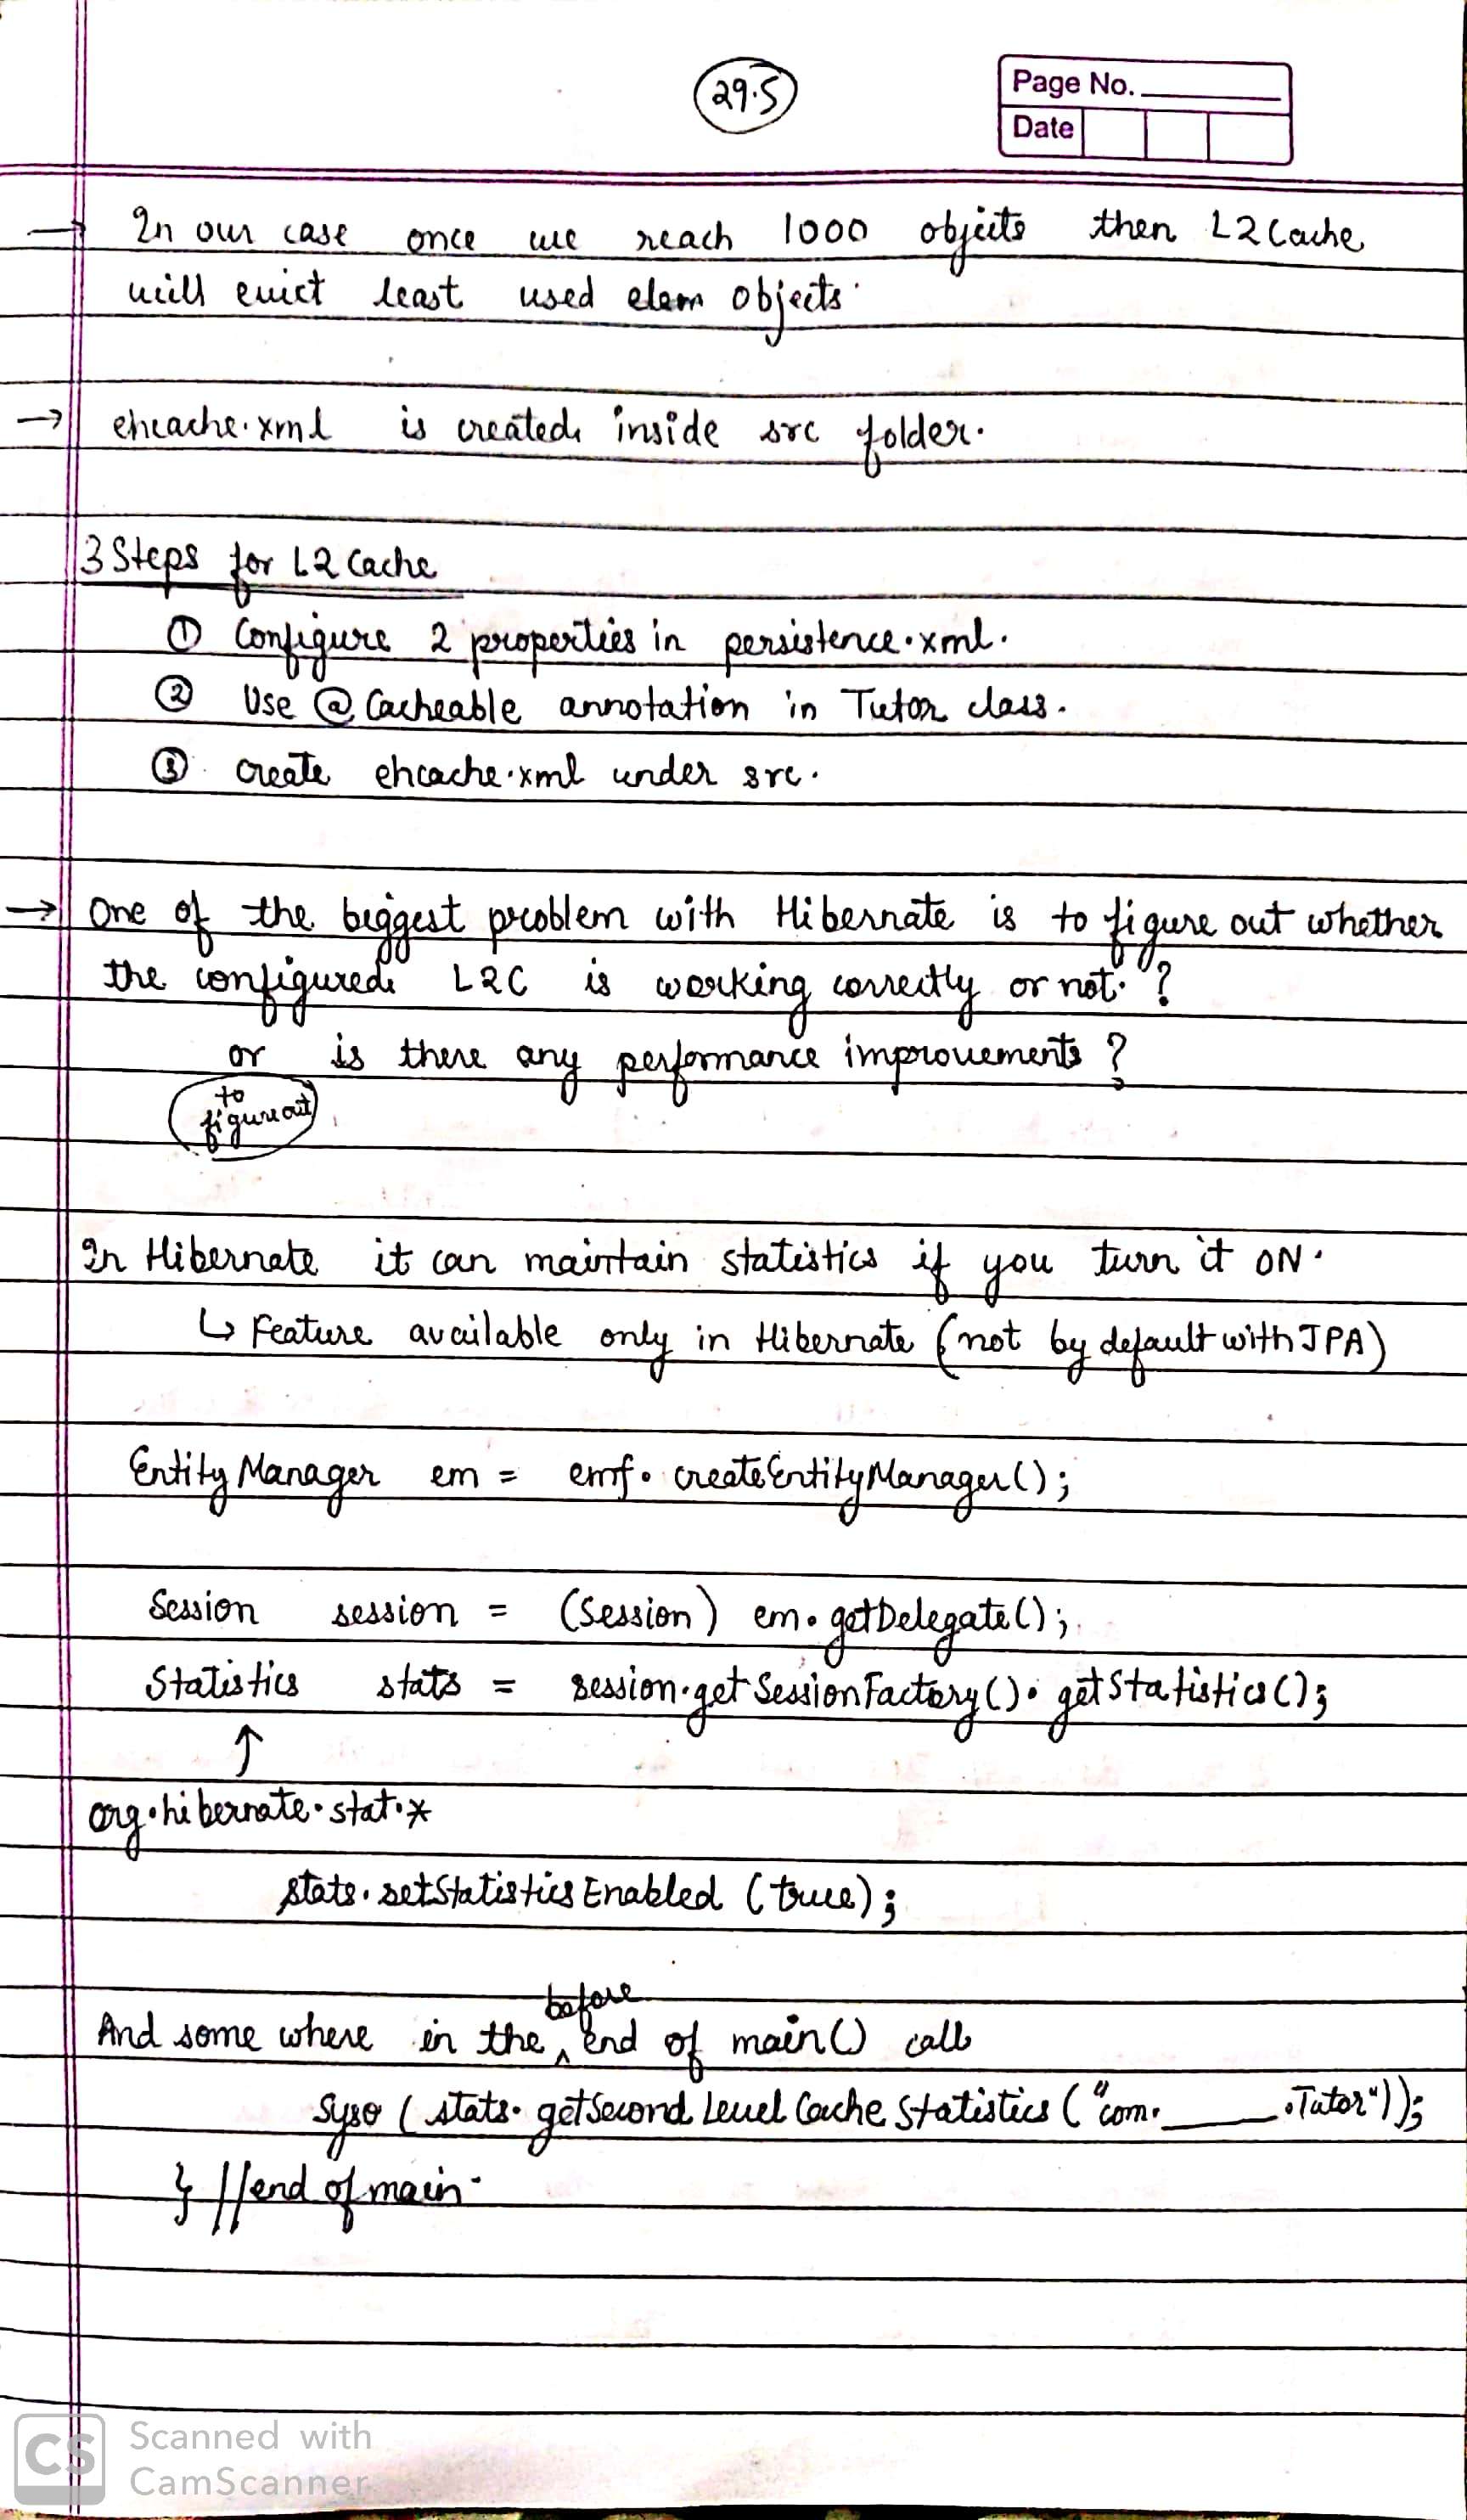 29.5
Page No.
Date
→ In our case once we reach 1000 objects then L2 Cache
will evict least used elem objects.
→ ehcache.xml is created inside src folder.
3 Steps for L2 Cache
① Configure 2 properties in persistence.xml.
② Use @Cacheable annotation in Tutor class.
③ create ehcache.xml under src.
→ One of the biggest problem with Hibernate is to figure out whether
the configured L2C is working correctly or not. ?
or is there any performance improvements ?
to
figure out
In Hibernate it can maintain statistics if you turn it ON.
↳ Feature available only in Hibernate (not by default with JPA)
Entity Manager em = emf. createEntityManager();
Session session = (Session) em.getDelegate();
Statistics stats = session.getSessionFactory(). getStatistics();
↑
org.hibernate.stat.*
stats.setStatisticsEnabled (true);
before
And some where in the ^ end of main() call
Syso (stats. getSecond Level Cache Statistics ("com.______.Tutor"));
} //end of main.
CS Scanned with
CamScanner